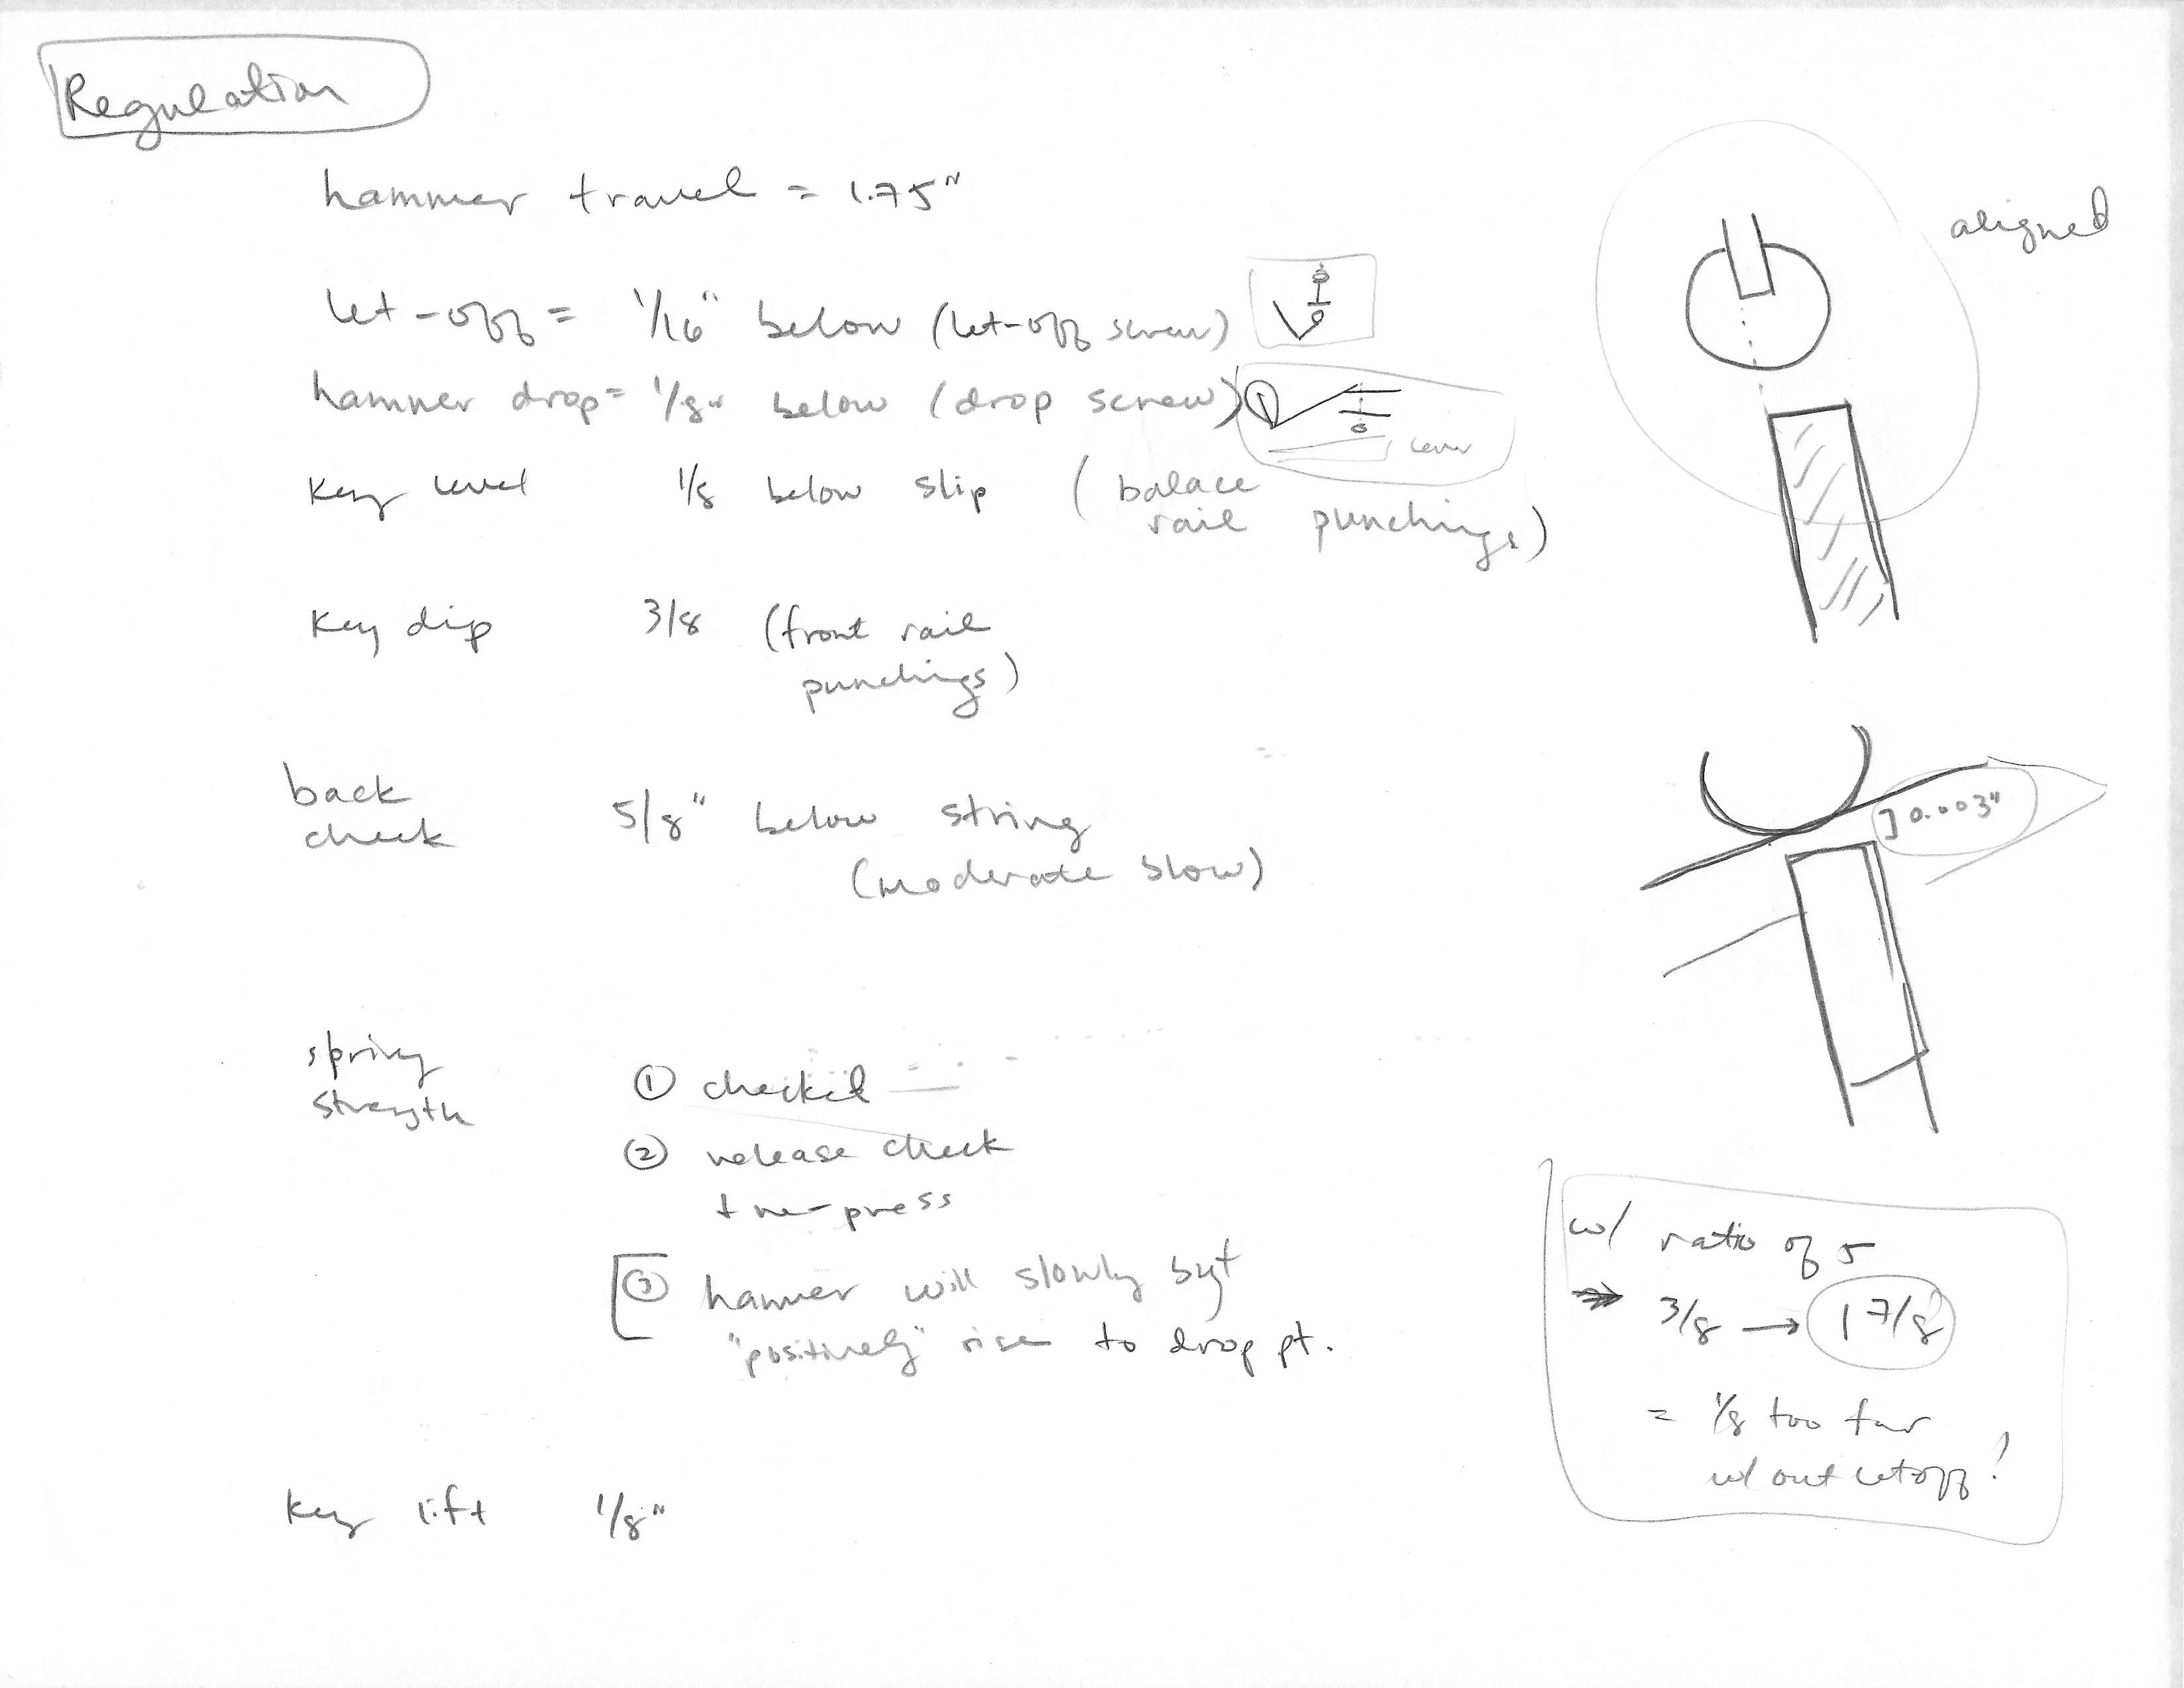 Regulation
hammer travel = 1.75"
aligned
let-off = 1/16" below (let-off screw)
hammer drop = 1/8" below (drop screw)
lever
key level 1/8 below slip (balace
rail punchings)
key dip 3/8 (front rail
punchings)
back
check
5/8" below string
(moderate blow)
] 0.003"
spring
strength
① checked
② release check
+ re-press
③ hammer will slowly byt
"positively" rise to drop pt.
key lift 1/8"
w/ ratio of 5
3/8 → 1 7/8
= 1/8 too far
w/out letoff!